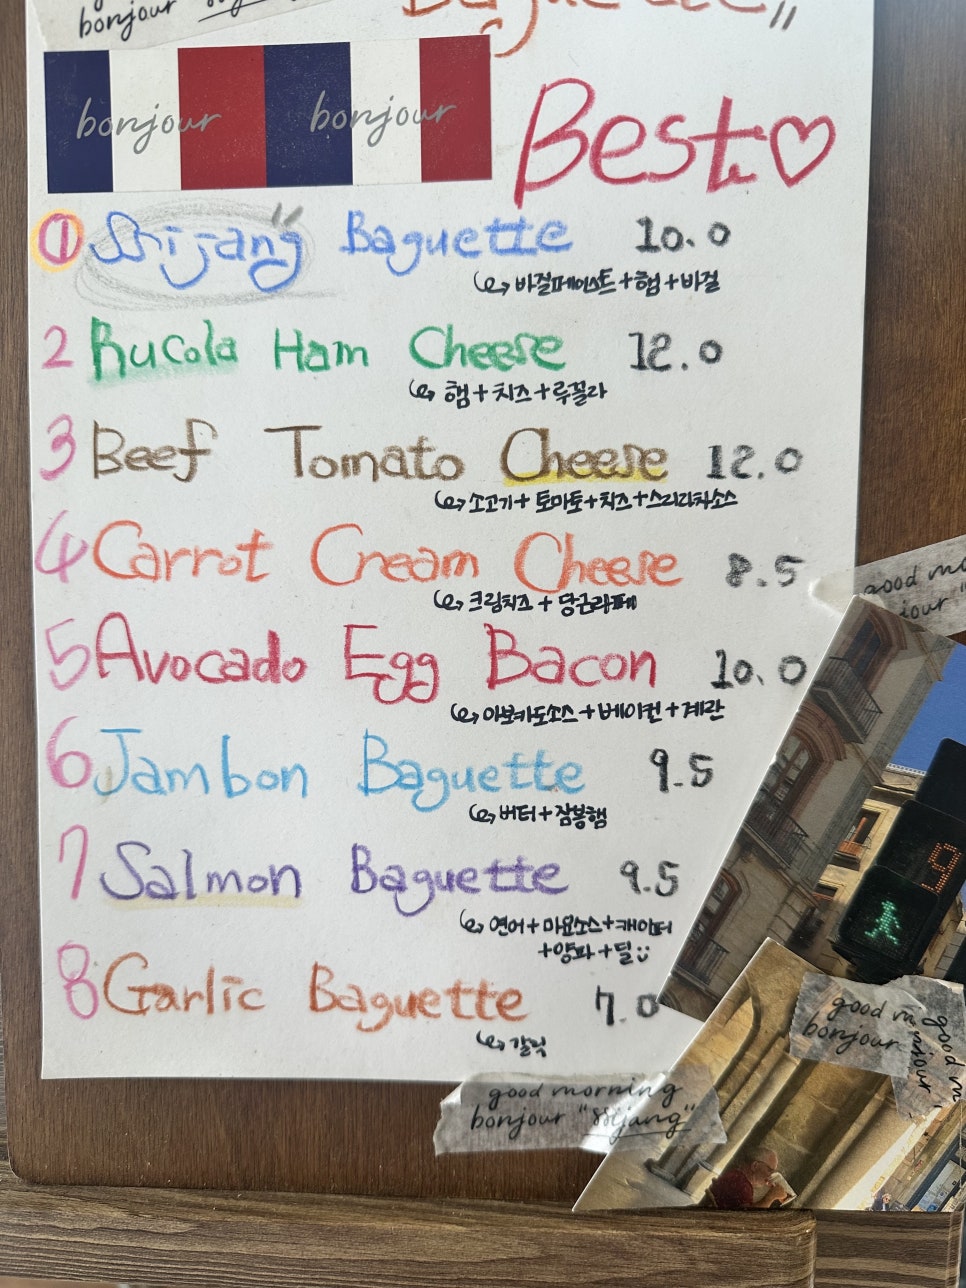 bonjour
Baguette"
bonjour bonjour
Best♡
1 Ssijang Baguette 10.0
바질페이스트+햄+바질
2 Rucola Ham Cheese 12.0
햄+치즈+루꼴라
3 Beef Tomato Cheese 12.0
소고기+토마토+치즈+스리라차소스
4 Carrot Cream Cheese 8.5
크림치즈+당근라페
5 Avocado Egg Bacon 10.0
아보카도소스+베이컨+계란
6 Jambon Baguette 9.5
버터+잠봉햄
7 Salmon Baguette 9.5
연어+마요소스+캐이퍼
+양파+딜
8 Garlic Baguette 7.0
갈릭
good mo
jour "
9
good m
bonjour
good m
njour
good morning
bonjour "ssijang"